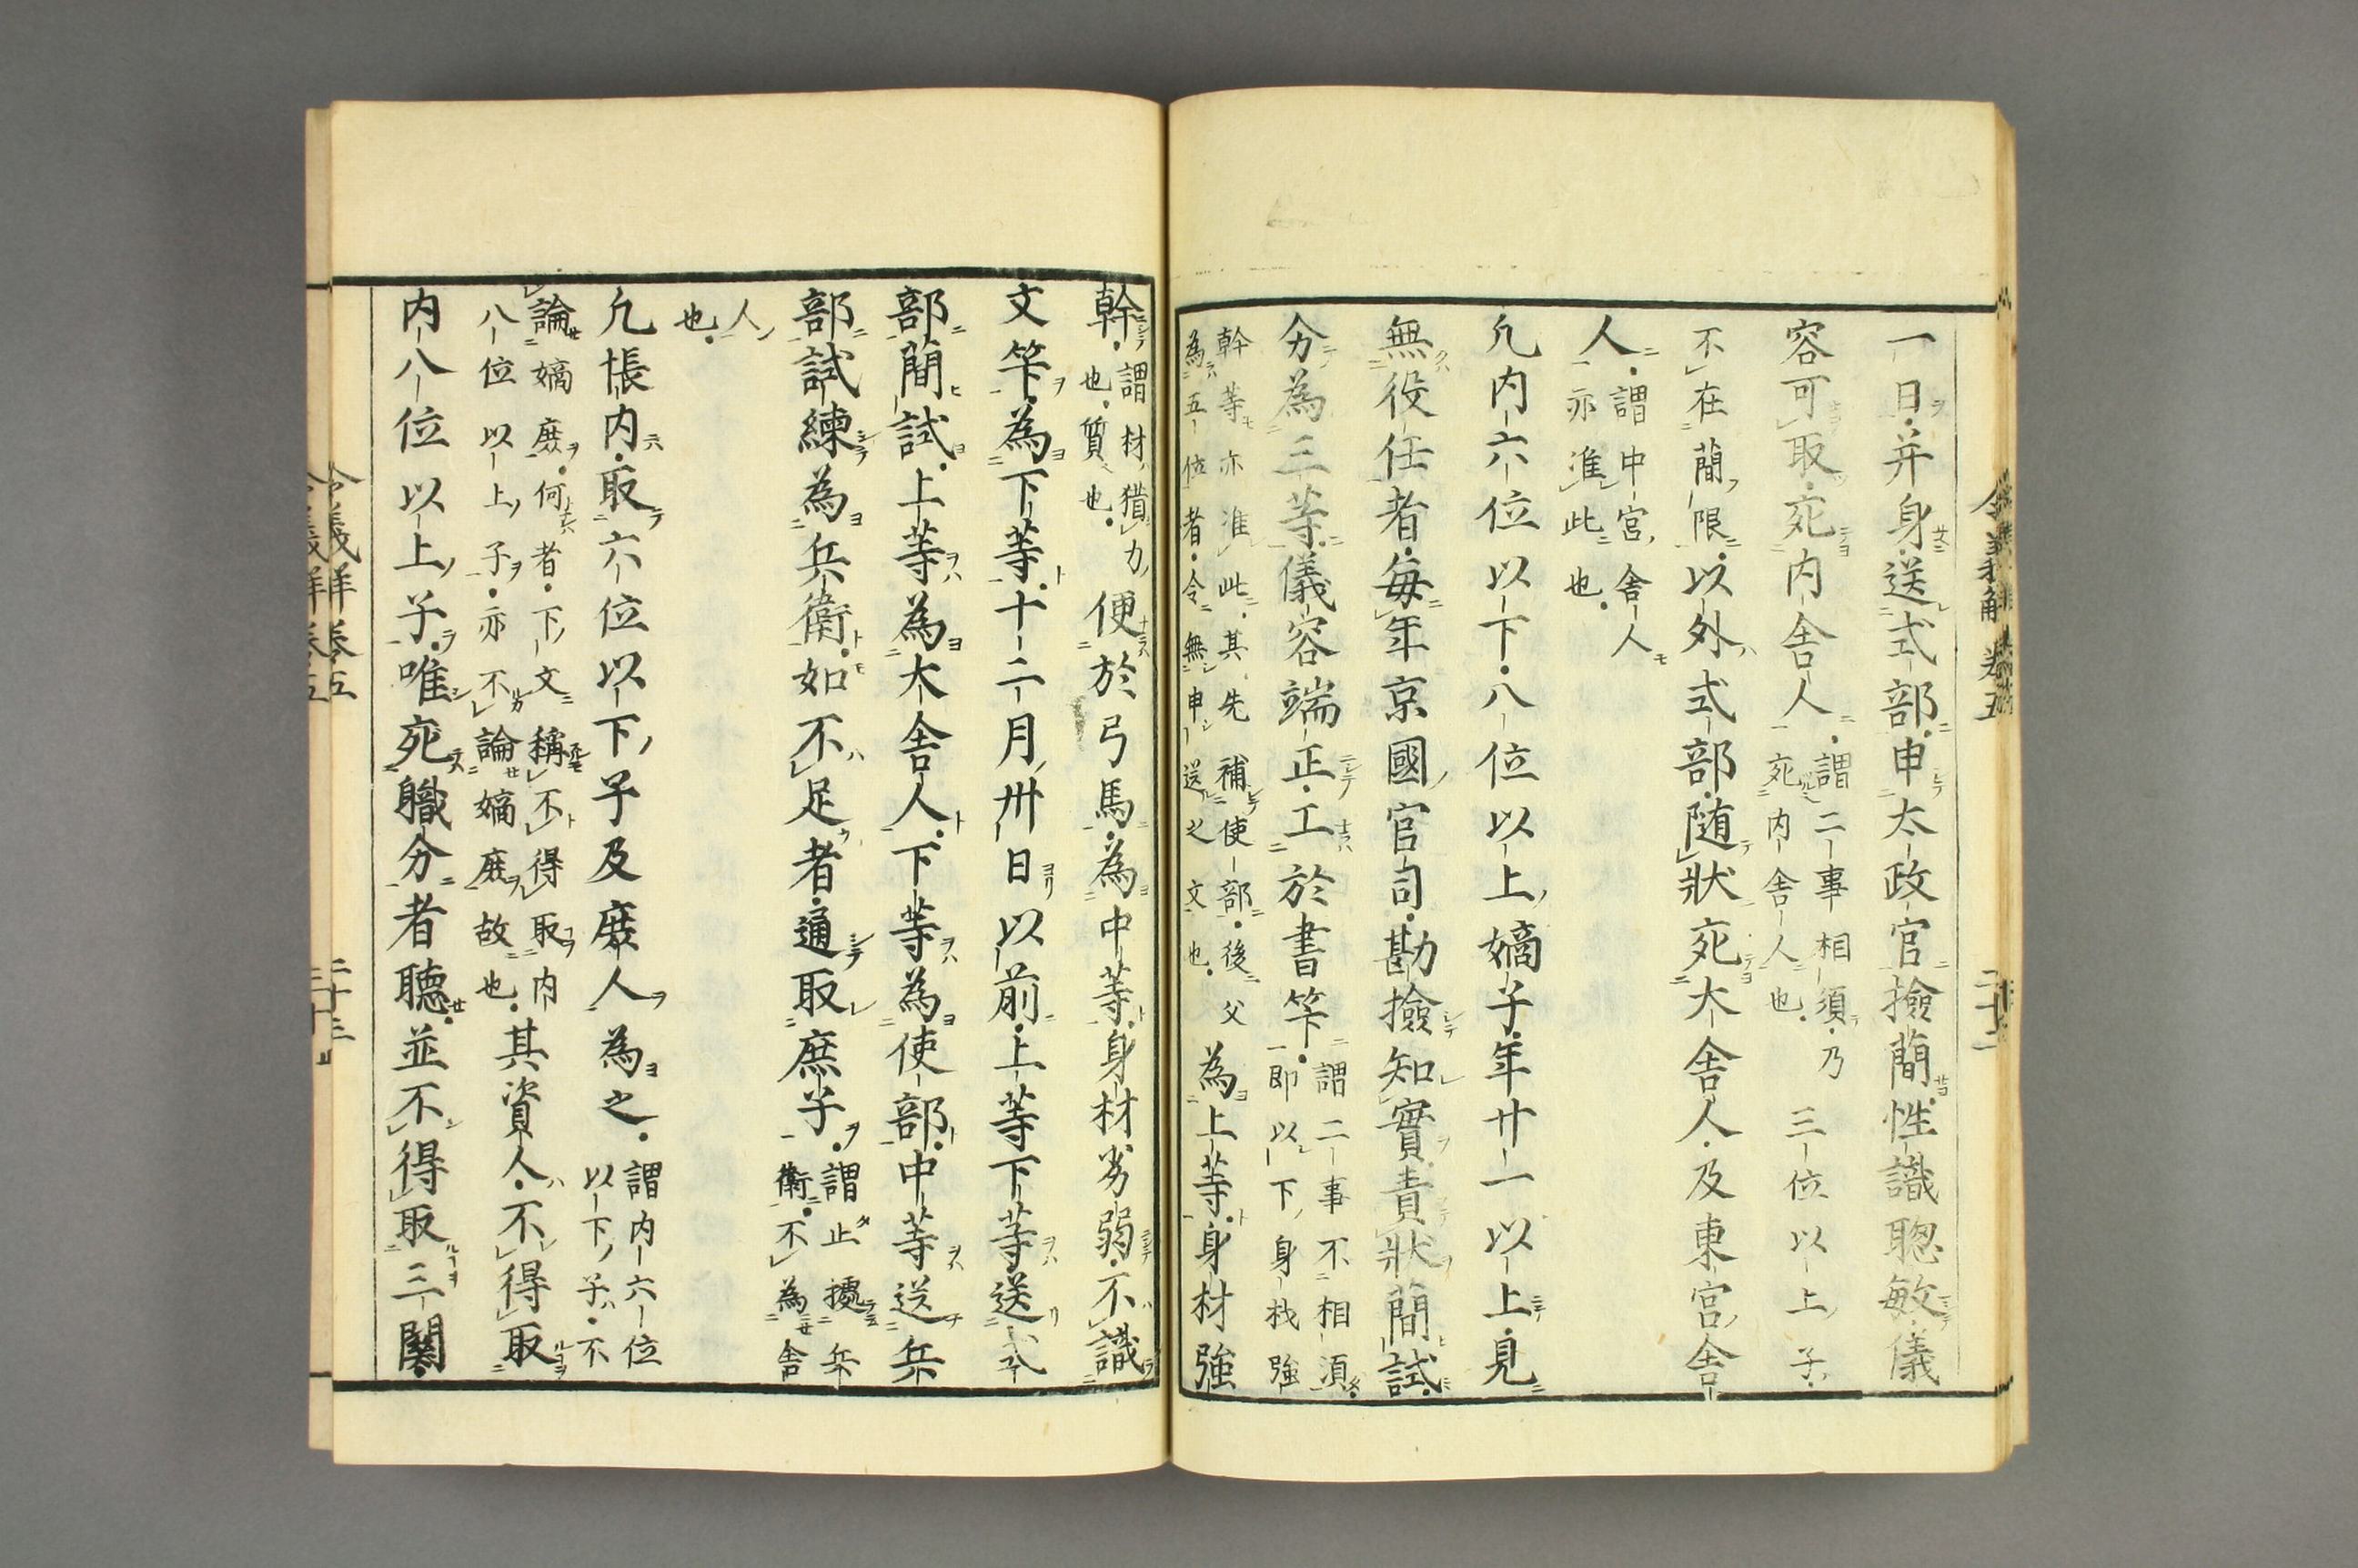 令義解卷五 二十二
一日并身送式部申太政官撿簡性識聰敏儀
容可取充内舎人
謂二事相須乃
充内舎人也
三位以上子
不在簡限以外式部随狀充大舎人及東宮舎
人
謂中宮舎人
亦准此也
凢内六位以下八位以上嫡子年廿一以上見
無役任者毎年京國官司勘撿知實責狀簡試
分為三等儀容端正工於書筭
謂二事不相須
即以下身材強
幹等亦准此其先補使部後父
為五位者令無申送之文也
為上等身材強
幹
謂材猶力
也質也
便於弓馬為中等身材劣弱不識
文筭為下等十二月卅日以前上等下等送式
部簡試上等為大舎人下等為使部中等送兵
部試練為兵衛如不足者通取庶子
謂止據兵
衛不為舎
人
也
凢帳内取六位以下子及庶人為之
謂内六位
以下子不
論嫡庶何者下文稱不得取内
八位以上子亦不論嫡庶故也
其資人不得取
内八位以上子唯充職分者聴並不得取三關
令義解卷五 二十三